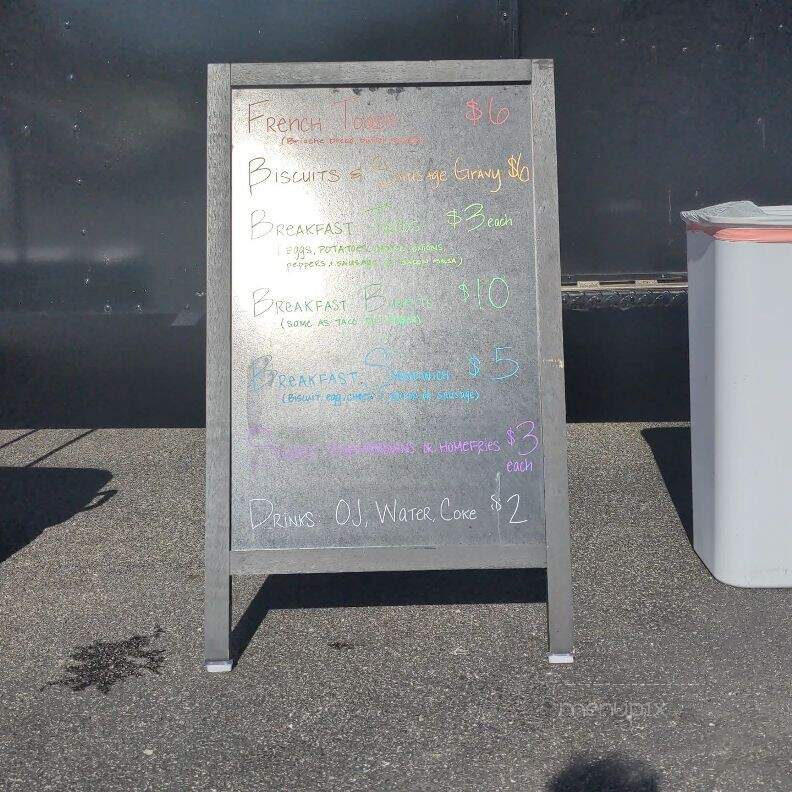 French Toast $6
(Brioche bread,
Biscuits & Sausage Gravy $6
Breakfast Tacos $3 each
(eggs, potatoes, onions,
peppers, + sausage or bacon salsa)
Breakfast Burrito $10
(same as taco
Breakfast Sandwich $5
(Biscuit, egg, cheese, bacon or sausage)
or Homefries $3
each
Drinks: OJ, Water, Coke $2
menupix